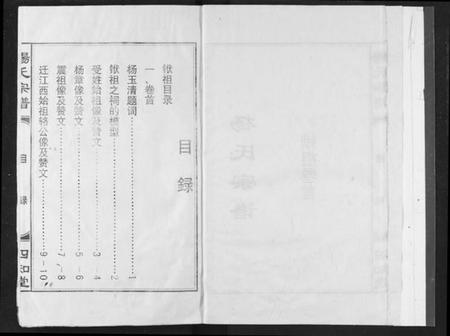 目録
钬祖目录
一、卷首
杨玉清题词……1
钬祖之祠的模型……2
受姓始祖像及赞文……3-4
杨章像及赞文……5-6
震祖像及赞文……7-8
迁江西始祖辂公像及赞文……9-10
楊氏宗譜
目録
四知堂
杨氏宗谱